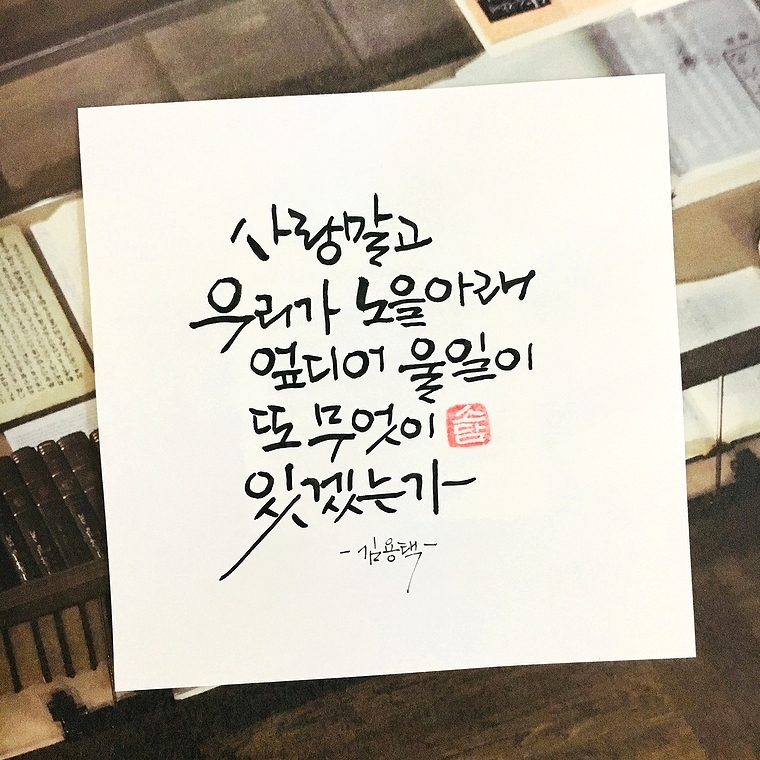 사랑말고
우리가 노을아래
엎디어 울일이
또 무엇이
있겠는가
소담
-김용택-